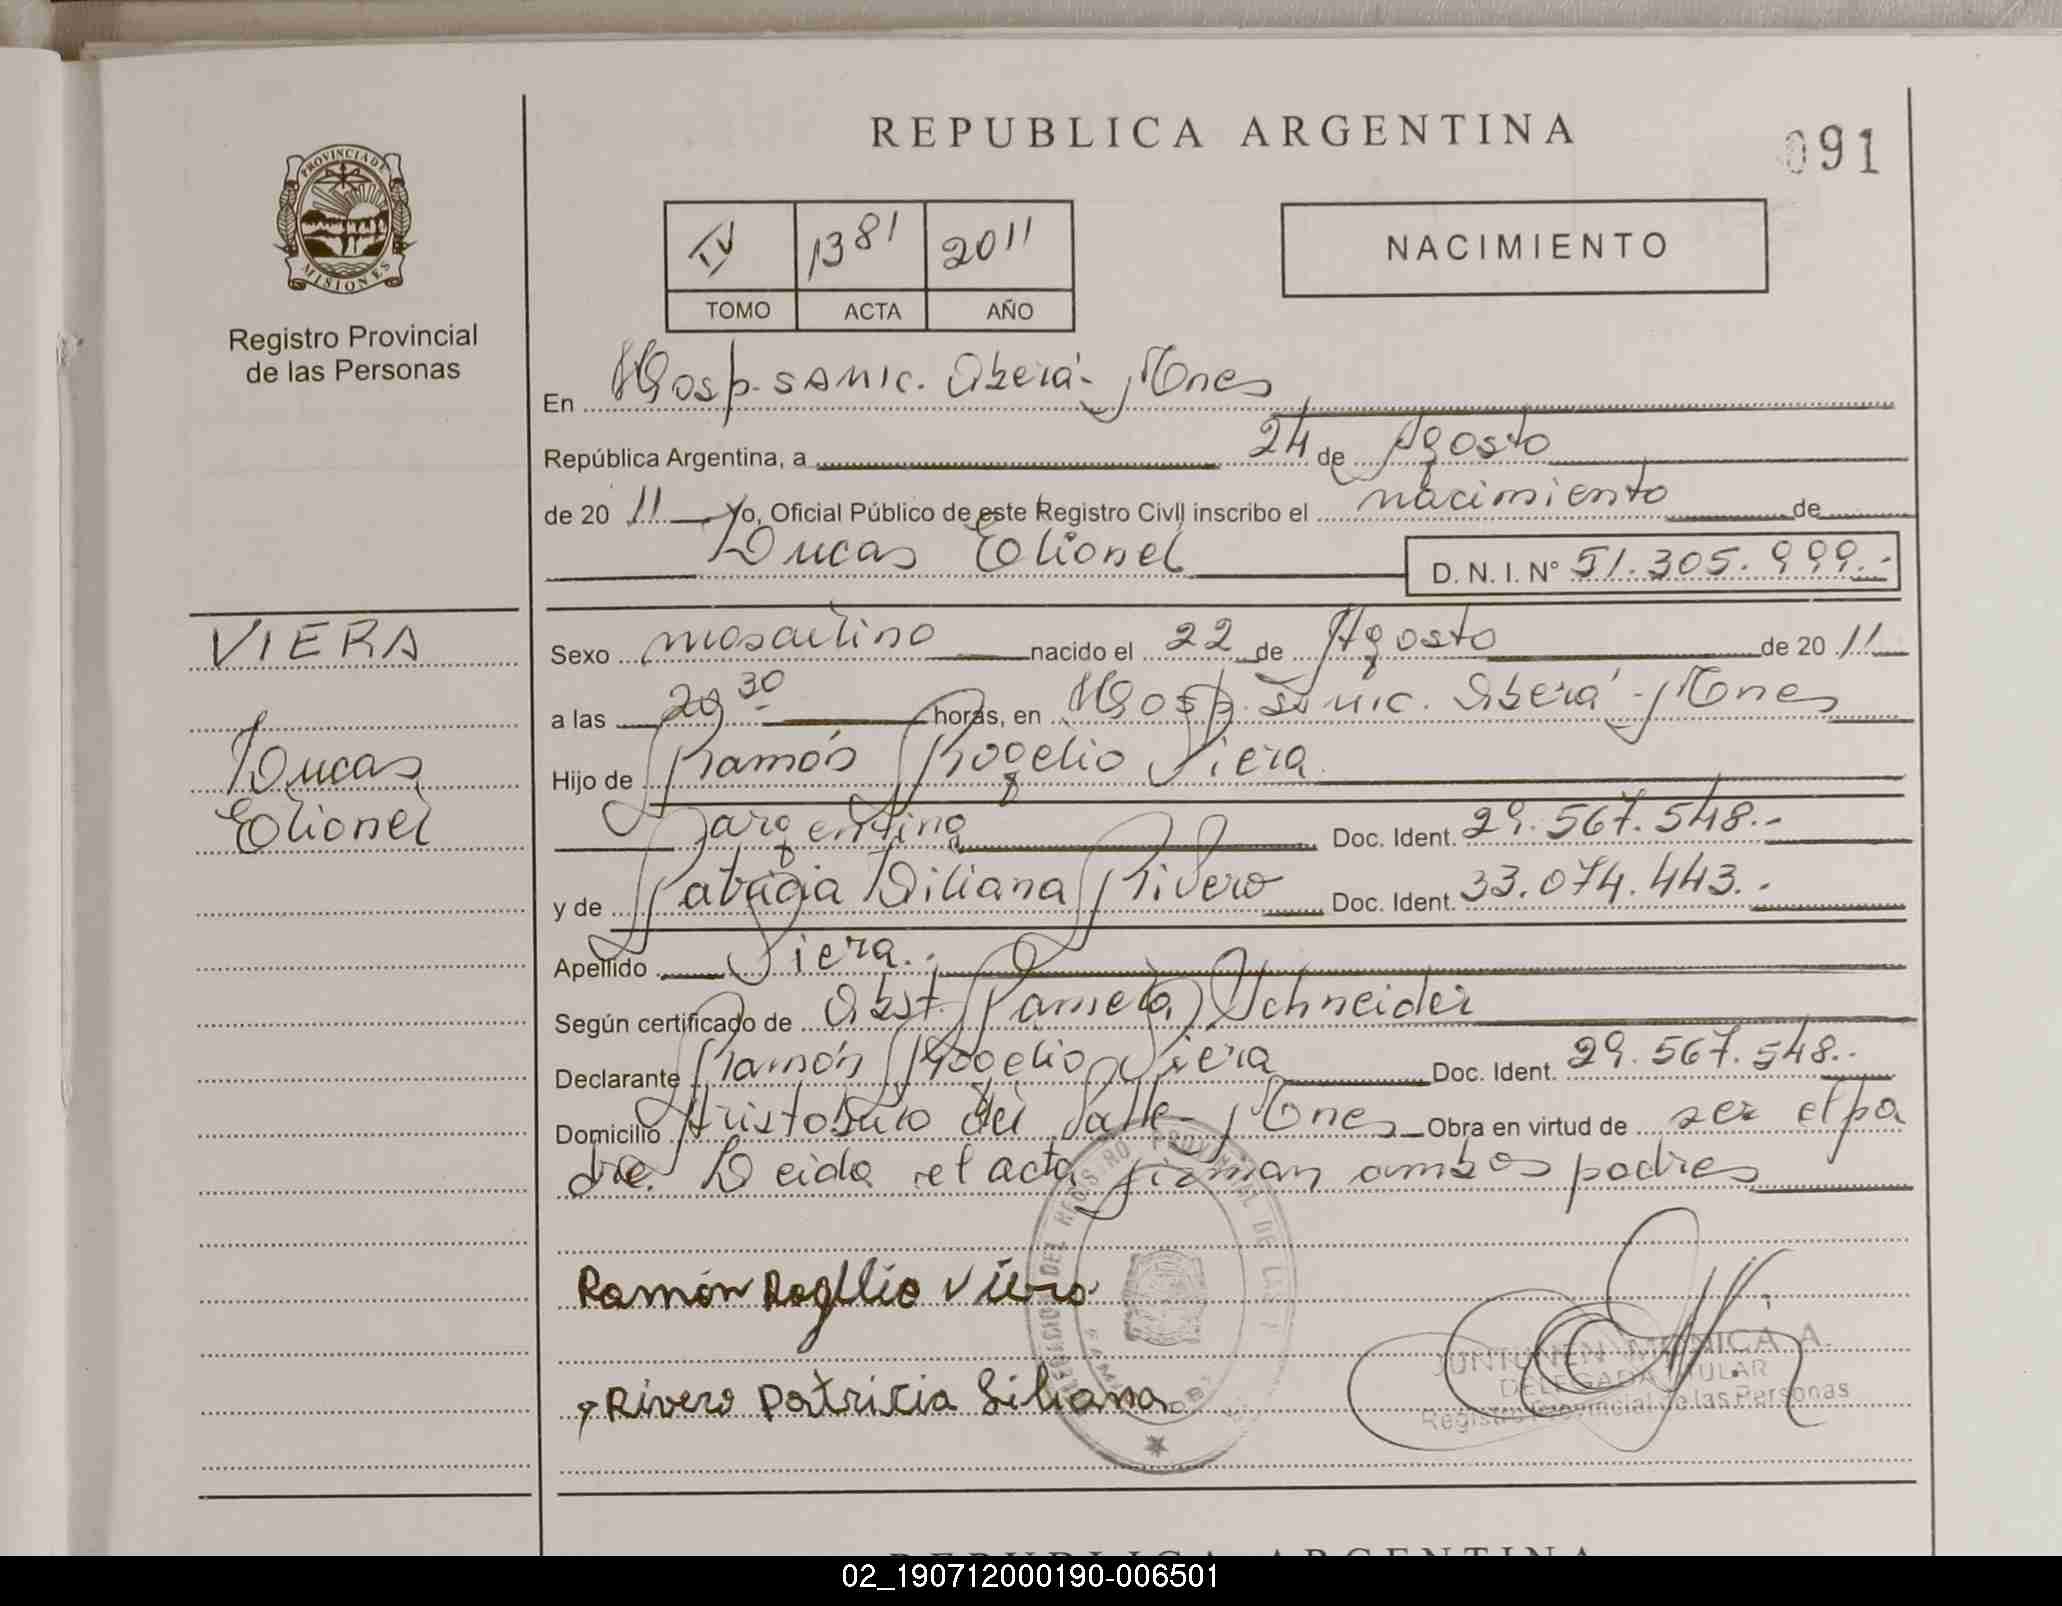 REPUBLICA ARGENTINA
091
PROVINCIA DE
MISIONES
Registro Provincial
de las Personas
IV 1381 2011
TOMO ACTA AÑO
NACIMIENTO
En Hosp. SAMIC. Oberá - Mnes
República Argentina, a 24 de Agosto
de 20 11 Yo, Oficial Público de este Registro Civil inscribo el nacimiento de
Lucas Elionel D. N. I. Nº 51.305.999.-
VIERA
Lucas
Elionel
Sexo masculino nacido el 22 de Agosto de 20 11
a las 20 30 horas, en Hosp. Samic. Oberá - Mnes
Hijo de Ramón Rogelio Viera
argentina Doc. Ident. 29.567.548.-
y de Patricia Liliana Rivero Doc. Ident. 33.074.443.-
Apellido Viera.-
Según certificado de Obst. Pamela Schneider
Declarante Ramón Rogelio Viera Doc. Ident. 29.567.548.-
Domicilio Aristobulo del Valle - Mnes Obra en virtud de ser el pa
dre. Leida el acta firman ambos padres
Ramón Rogelio Viera
Rivero Patricia Liliana
JUNTUNEN MONICA A.
DELEGADA TITULAR
Registro Provincial de las Personas
REPUBLICA ARGENTINA
02_190712000190-006501